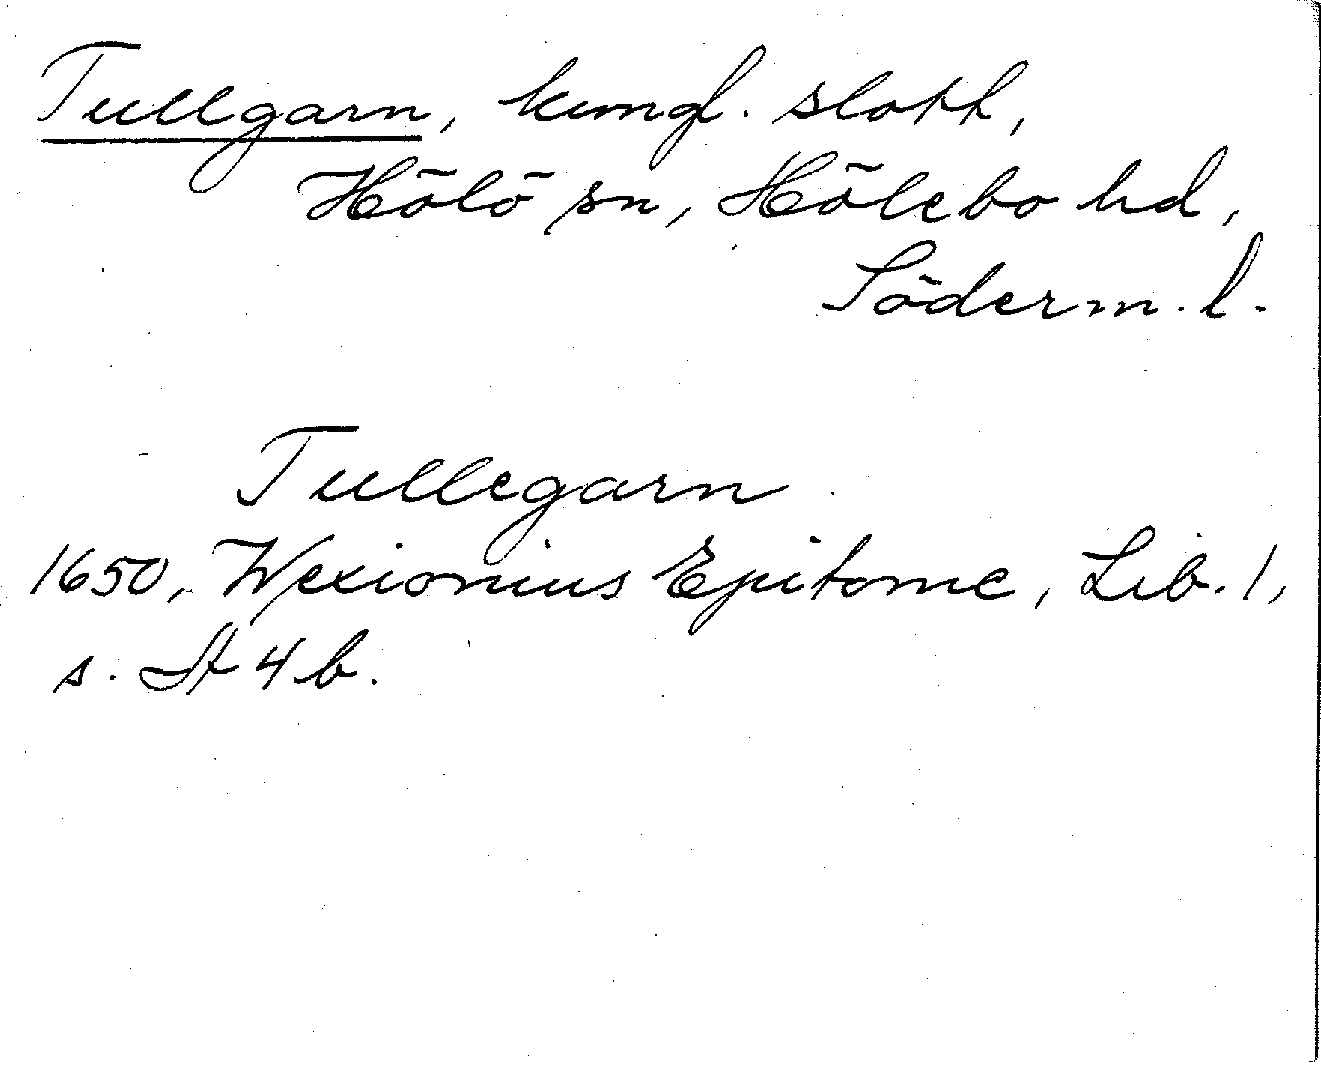 Tullgarn, kungl. slott,
Hölö sn, Hölebo hd,
Söderm. l.
Tullegarn
1650, Wexionius Epitome, Lib. 1,
s. 4 b.